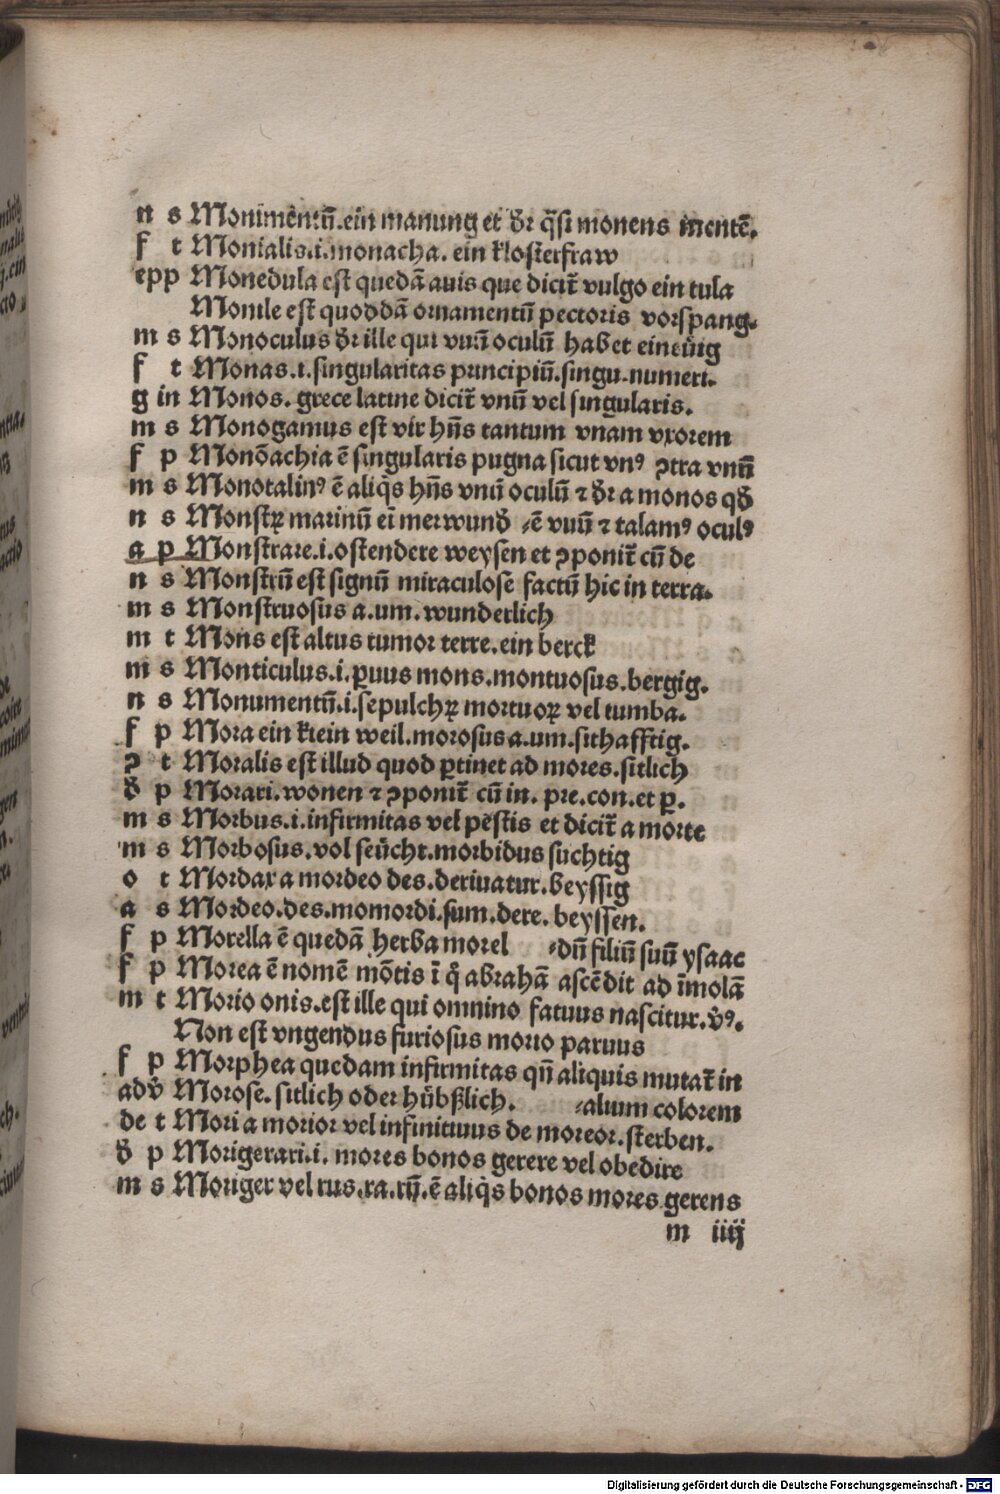 n s Monimentū.ein manung et dr̄ q̄si monens mentē.
f t Monialis.i.monacha. ein klosterfraw
epp Monedula est quedā auis que dicit̄ vulgo ein tula
Monile est quoddā ornamentū pectoris vorspang.
m s Monoculus dr̄ ille qui vnū oculū habet eineüig
f t Monas.i.singularitas principiū.singu.numeri.
g in Monos. grece latine dicit̄ vnū vel singularis.
m s Monogamus est vir hn̄s tantum vnam vxorem
f p Monōachia ē singularis pugna sicut vnꝰ ꝯtra vnū
m s Monotalinꝰ ē aliq̇s hn̄s vnū oculū ⁊ dr̄ a monos qđ
n s Monstꝝ marinū ei merwunđ ⸗ē vnū ⁊ talamꝰ oculꝰ
a p Monstrare.i.ostendere weysen et ꝯponit̄ cū de
n s Monstrū est signū miraculose factū hic in terra.
m s Monstruosus a.um.wunderlich
m t Mons est altus tumor terre.ein berck
m s Monticulus.i.ꝑuus mons.montuosus.bergig.
n s Monumentū.i.sepulchꝝ mortuoꝝ vel tumba.
f p Mora ein klein weil.morosus a.um.sithafftig.
ꝯ t Moralis est illud quod ꝑtinet ad mores.sitlich
đ p Morari.wonen ⁊ ꝯponit̄ cū in. pre.con.et ꝑ.
m s Morbus.i.infirmitas vel pestis et dicit̄ a morte
m s Morbosus.vol seücht.morbidus suchtig
o t Mordax a mordeo des.deriuatur.beyssig
a s Mordeo.des.momordi.sum.dere. beyssen.
f p Morella ē quedā herba morel ⸗dū filiū suū ysaac
f p Morea ē nomē mōtis ī q̊ abrahā ascēdit ad īmolā
m t Morio onis.est ille qui omnino fatuus nascitur.v̄ꝰ.
Non est vngendus furiosus morio paruus
f p Morphea quedam infirmitas qn̄ aliquis mutat̄ in
adv̄ Morose. sitlich oder hübßlich. ⸗alium colorem
de t Mori a morior vel infinitiuus de moreor.sterben.
đ p Morigerari.i. mores bonos gerere vel obedire
m s Moriger vel rus.ra.rū.ē aliq̇s bonos mores gerens
m iiij
Digitalisierung gefördert durch die Deutsche Forschungsgemeinschaft - DFG